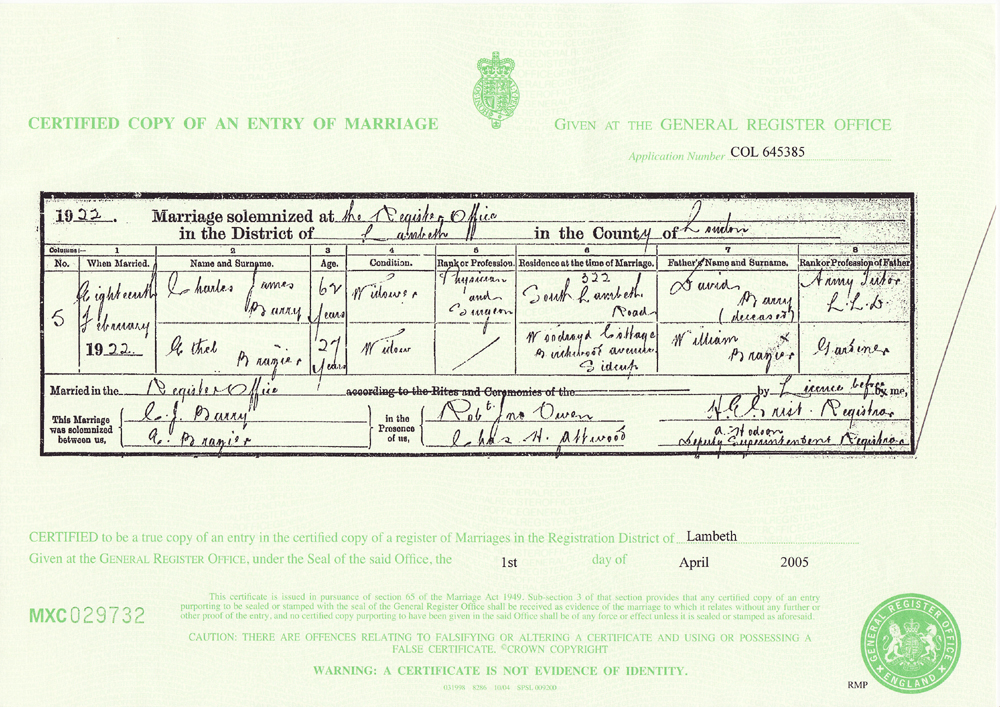 CERTIFIED COPY OF AN ENTRY OF MARRIAGE
GIVEN AT THE GENERAL REGISTER OFFICE
Application Number COL 645385
1922. Marriage solemnized at the Register Office
in the District of Lambeth in the County of London
Columns:— 1 2 3 4 5 6 7 8
No. When Married. Name and Surname. Age. Condition. Rank or Profession. Residence at the time of Marriage. Father's Name and Surname. Rank or Profession of Father
5 Eighteenth February 1922.
Charles James Barry 62 years Widower Physician and Surgeon 322 South Lambeth Road David Barry (deceased) Army Tutor L.L.D.
Ethel Brazier 27 years Widow Woodroyd Cottage Birkwood avenue Sidcup William Brazier x Gardiner
Married in the Register Office according to the Rites and Ceremonies of the by Licence before me,
This Marriage was solemnized between us,
C. J. Barry
E. Brazier
in the Presence of us,
Robt. Jno Owen
Chas H. Attwood
H. E. Grist. Registrar
A. Hodson
Deputy Superintendent Registrar
CERTIFIED to be a true copy of an entry in the certified copy of a register of Marriages in the Registration District of Lambeth
Given at the GENERAL REGISTER OFFICE, under the Seal of the said Office, the 1st day of April 2005
This certificate is issued in pursuance of section 65 of the Marriage Act 1949. Sub-section 3 of that section provides that any certified copy of an entry
purporting to be sealed or stamped with the seal of the General Register Office shall be received as evidence of the marriage to which it relates without any further or
other proof of the entry, and no certified copy purporting to have been given in the said Office shall be of any force or effect unless it is sealed or stamped as aforesaid.
MXC 029732
CAUTION: THERE ARE OFFENCES RELATING TO FALSIFYING OR ALTERING A CERTIFICATE AND USING OR POSSESSING A
FALSE CERTIFICATE. ©CROWN COPYRIGHT
WARNING: A CERTIFICATE IS NOT EVIDENCE OF IDENTITY.
031998 8286 10/04 SPSL 009200
GENERAL REGISTER OFFICE
ENGLAND
RMP